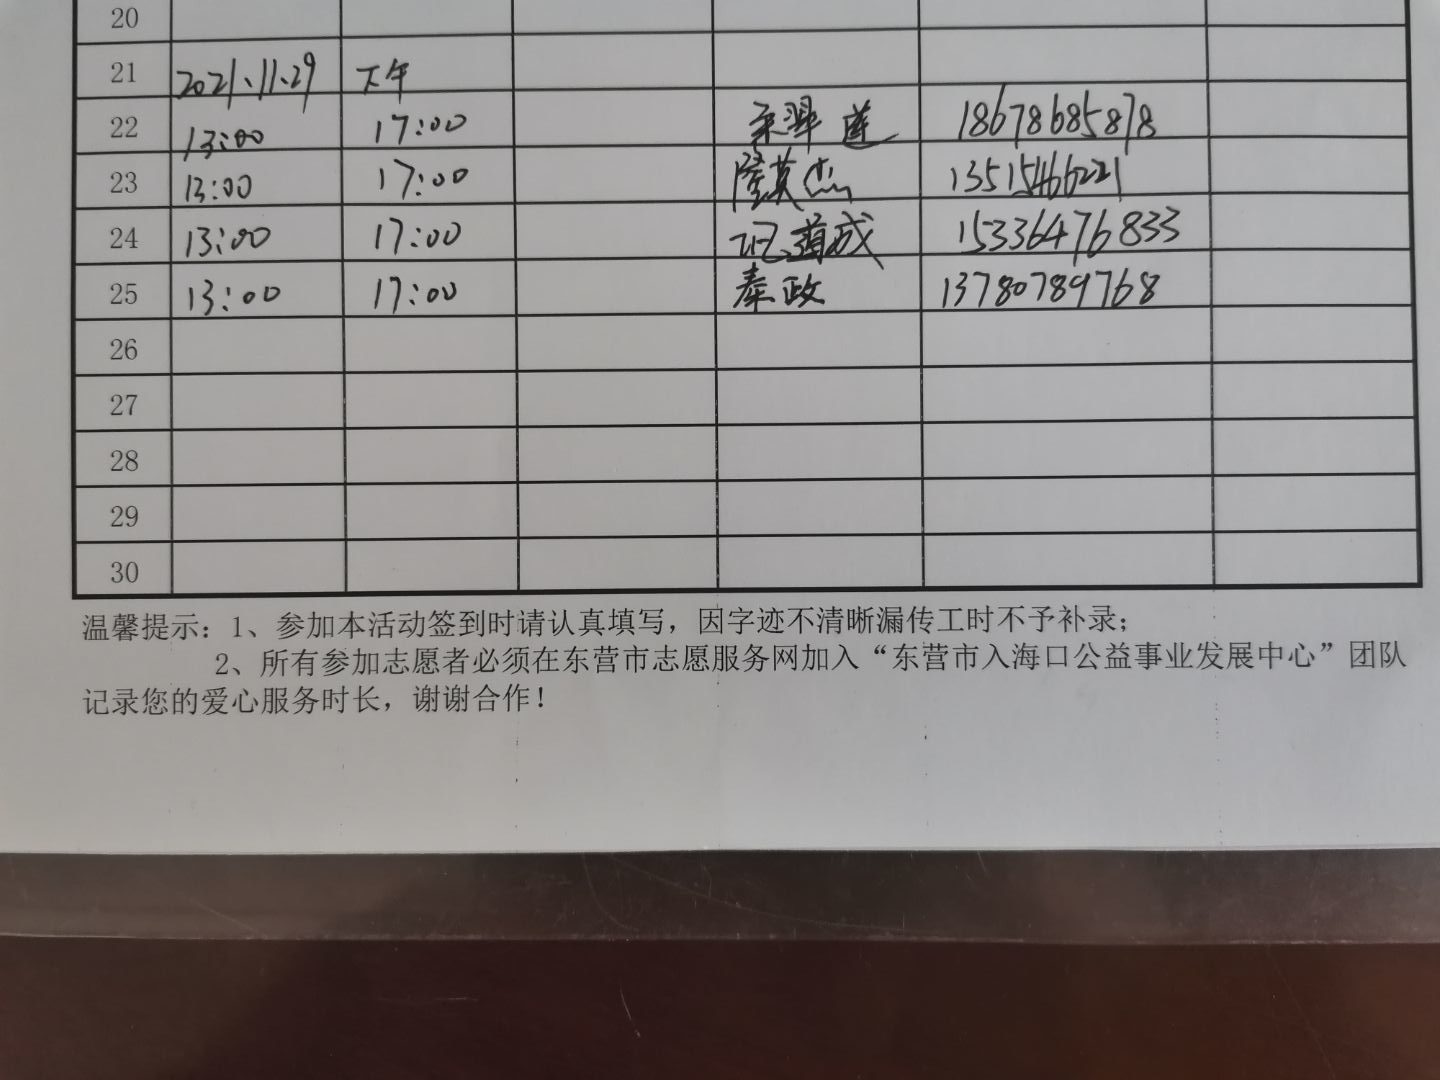 20
21 2021.11.29 下午
22 13:00 17:00 18678685878
23 13:00 17:00 13515466221
24 13:00 17:00 道成 15336476833
25 13:00 17:00 秦政 13780789768
26
27
28
29
30
温馨提示：1、参加本活动签到时请认真填写，因字迹不清晰漏传工时不予补录；
2、所有参加志愿者必须在东营市志愿服务网加入“东营市入海口公益事业发展中心”团队
记录您的爱心服务时长，谢谢合作！